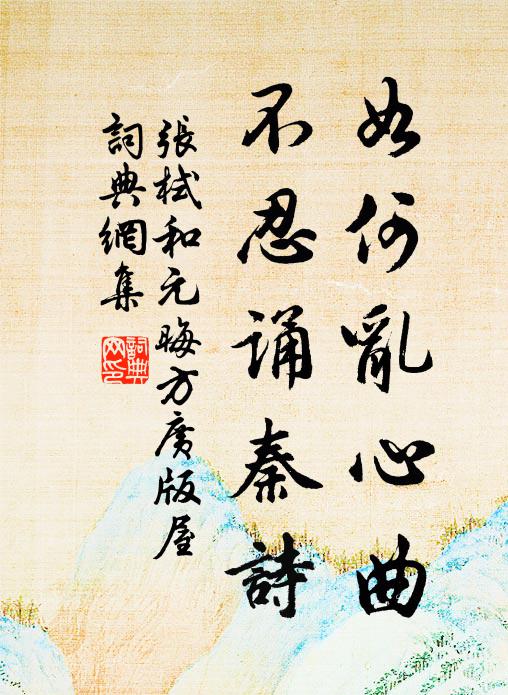 如何亂心曲
不忍誦秦詩
張栻和元晦方廣版屋
詞典網集
詞典網印